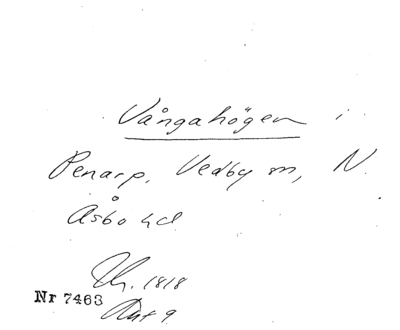 Vångahögen i
Penarp, Vedby sn, N.
Åsbo hd
Uh. 1818
Nr 7463
Ant 9